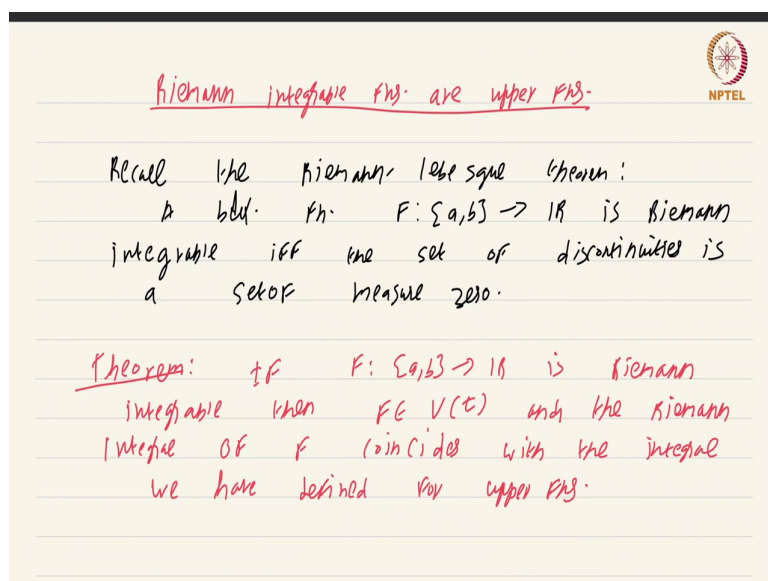 Riemann integrable fns. are upper fns.
NPTEL
Recall the Riemann-lebesgue theorem:
A bdd. fn. F: [a,b] → IR is Riemann
integrable iff the set of discontinuities is
a set of measure zero.
Theorem: If F: [a,b] → IR is Riemann
integrable then F ∈ U(I) and the Riemann
Integral OF F coincides with the integral
we have defined for upper fns.